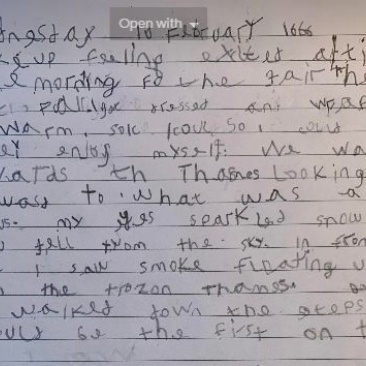 Open with
ngsday 10 February 1666
up feeling exited
e morning to the fair The
Polridge dressed and wrap
warm. so I could
enjoy myself. We wa
wards th Thames Looking
wass to what was a
us. my yes spearkled snow
fell from the sky. In fron
I saw smoke floating u
the frozen thames.
walked down the steps
ould be the first on t